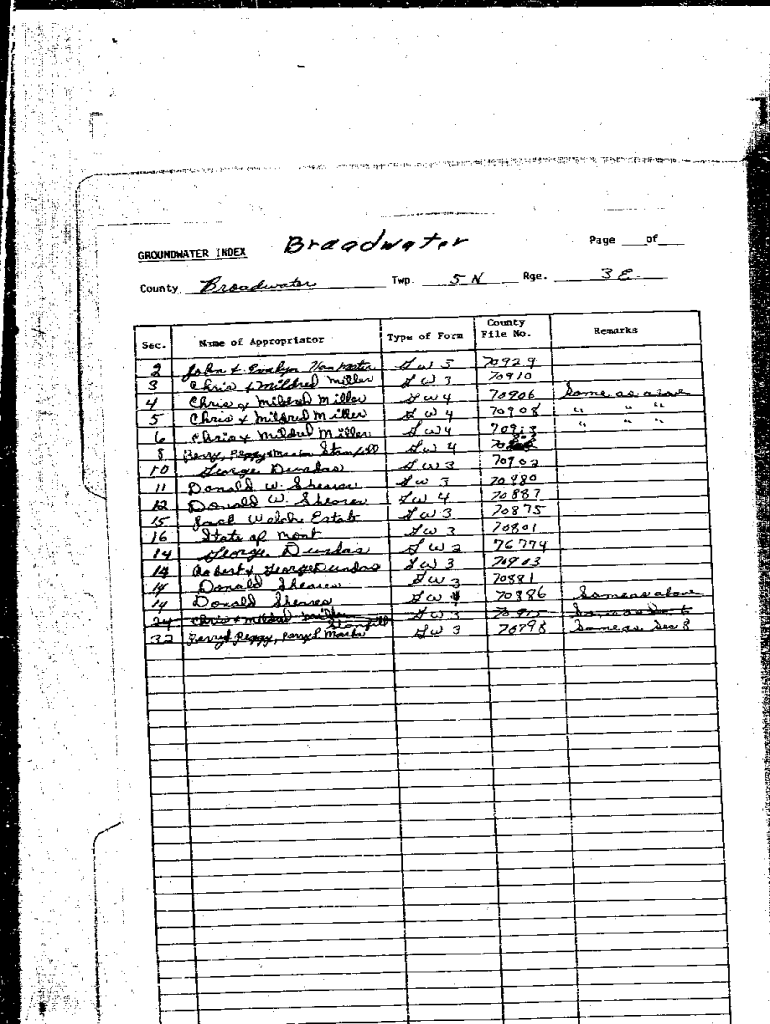 GROUNDWATER INDEX Broadwater Page ___of___
County Broadwater Twp. 5 N Rge. 3 E.
Sec. Name of Appropriator Type of Form County File No. Remarks
2 John & Evelyn GW 3 70929
3 Chris & Mildred Miller GW 3 70910
4 Chris & Mildred Miller GW 4 70906 Same as above
5 Chris & Mildred Miller GW 4 70908 " " "
6 Chris & Mildred Miller GW 4 70913 " " "
8 Perry, Peggy GW 4
10 George Dundas GW 3 70902
11 Donald W. Shearer GW 3 70880
12 Donald W. Shearer GW 4 70887
15 Jack Welch Estate GW 3 70875
16 State of Mont GW 3 70801
14 George Dundas GW 2 76774
14 Robert & George Dundas GW 3 70903
14 Donald Shearer GW 3 70881
14 Donald Shearer GW 4 70886 Same as above
24 Chris & Mildred Miller GW 3 Same as Sec 6
32 Peggy, GW 3 70798 Same as Sec 8